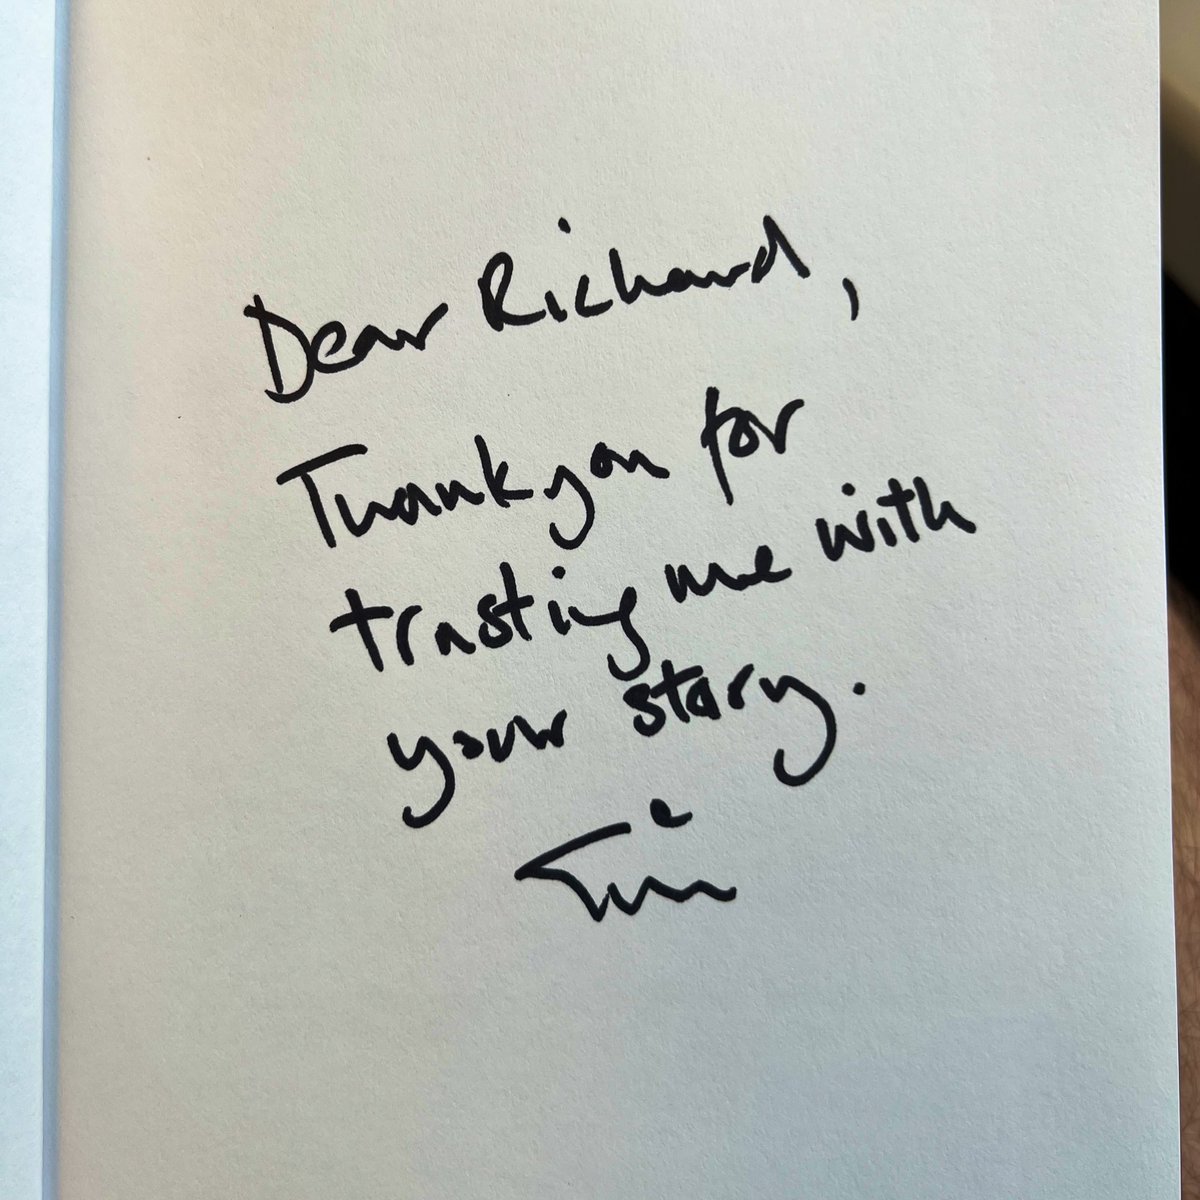 Dear Richard,
Thank you for
trusting me with
your story.
Tim